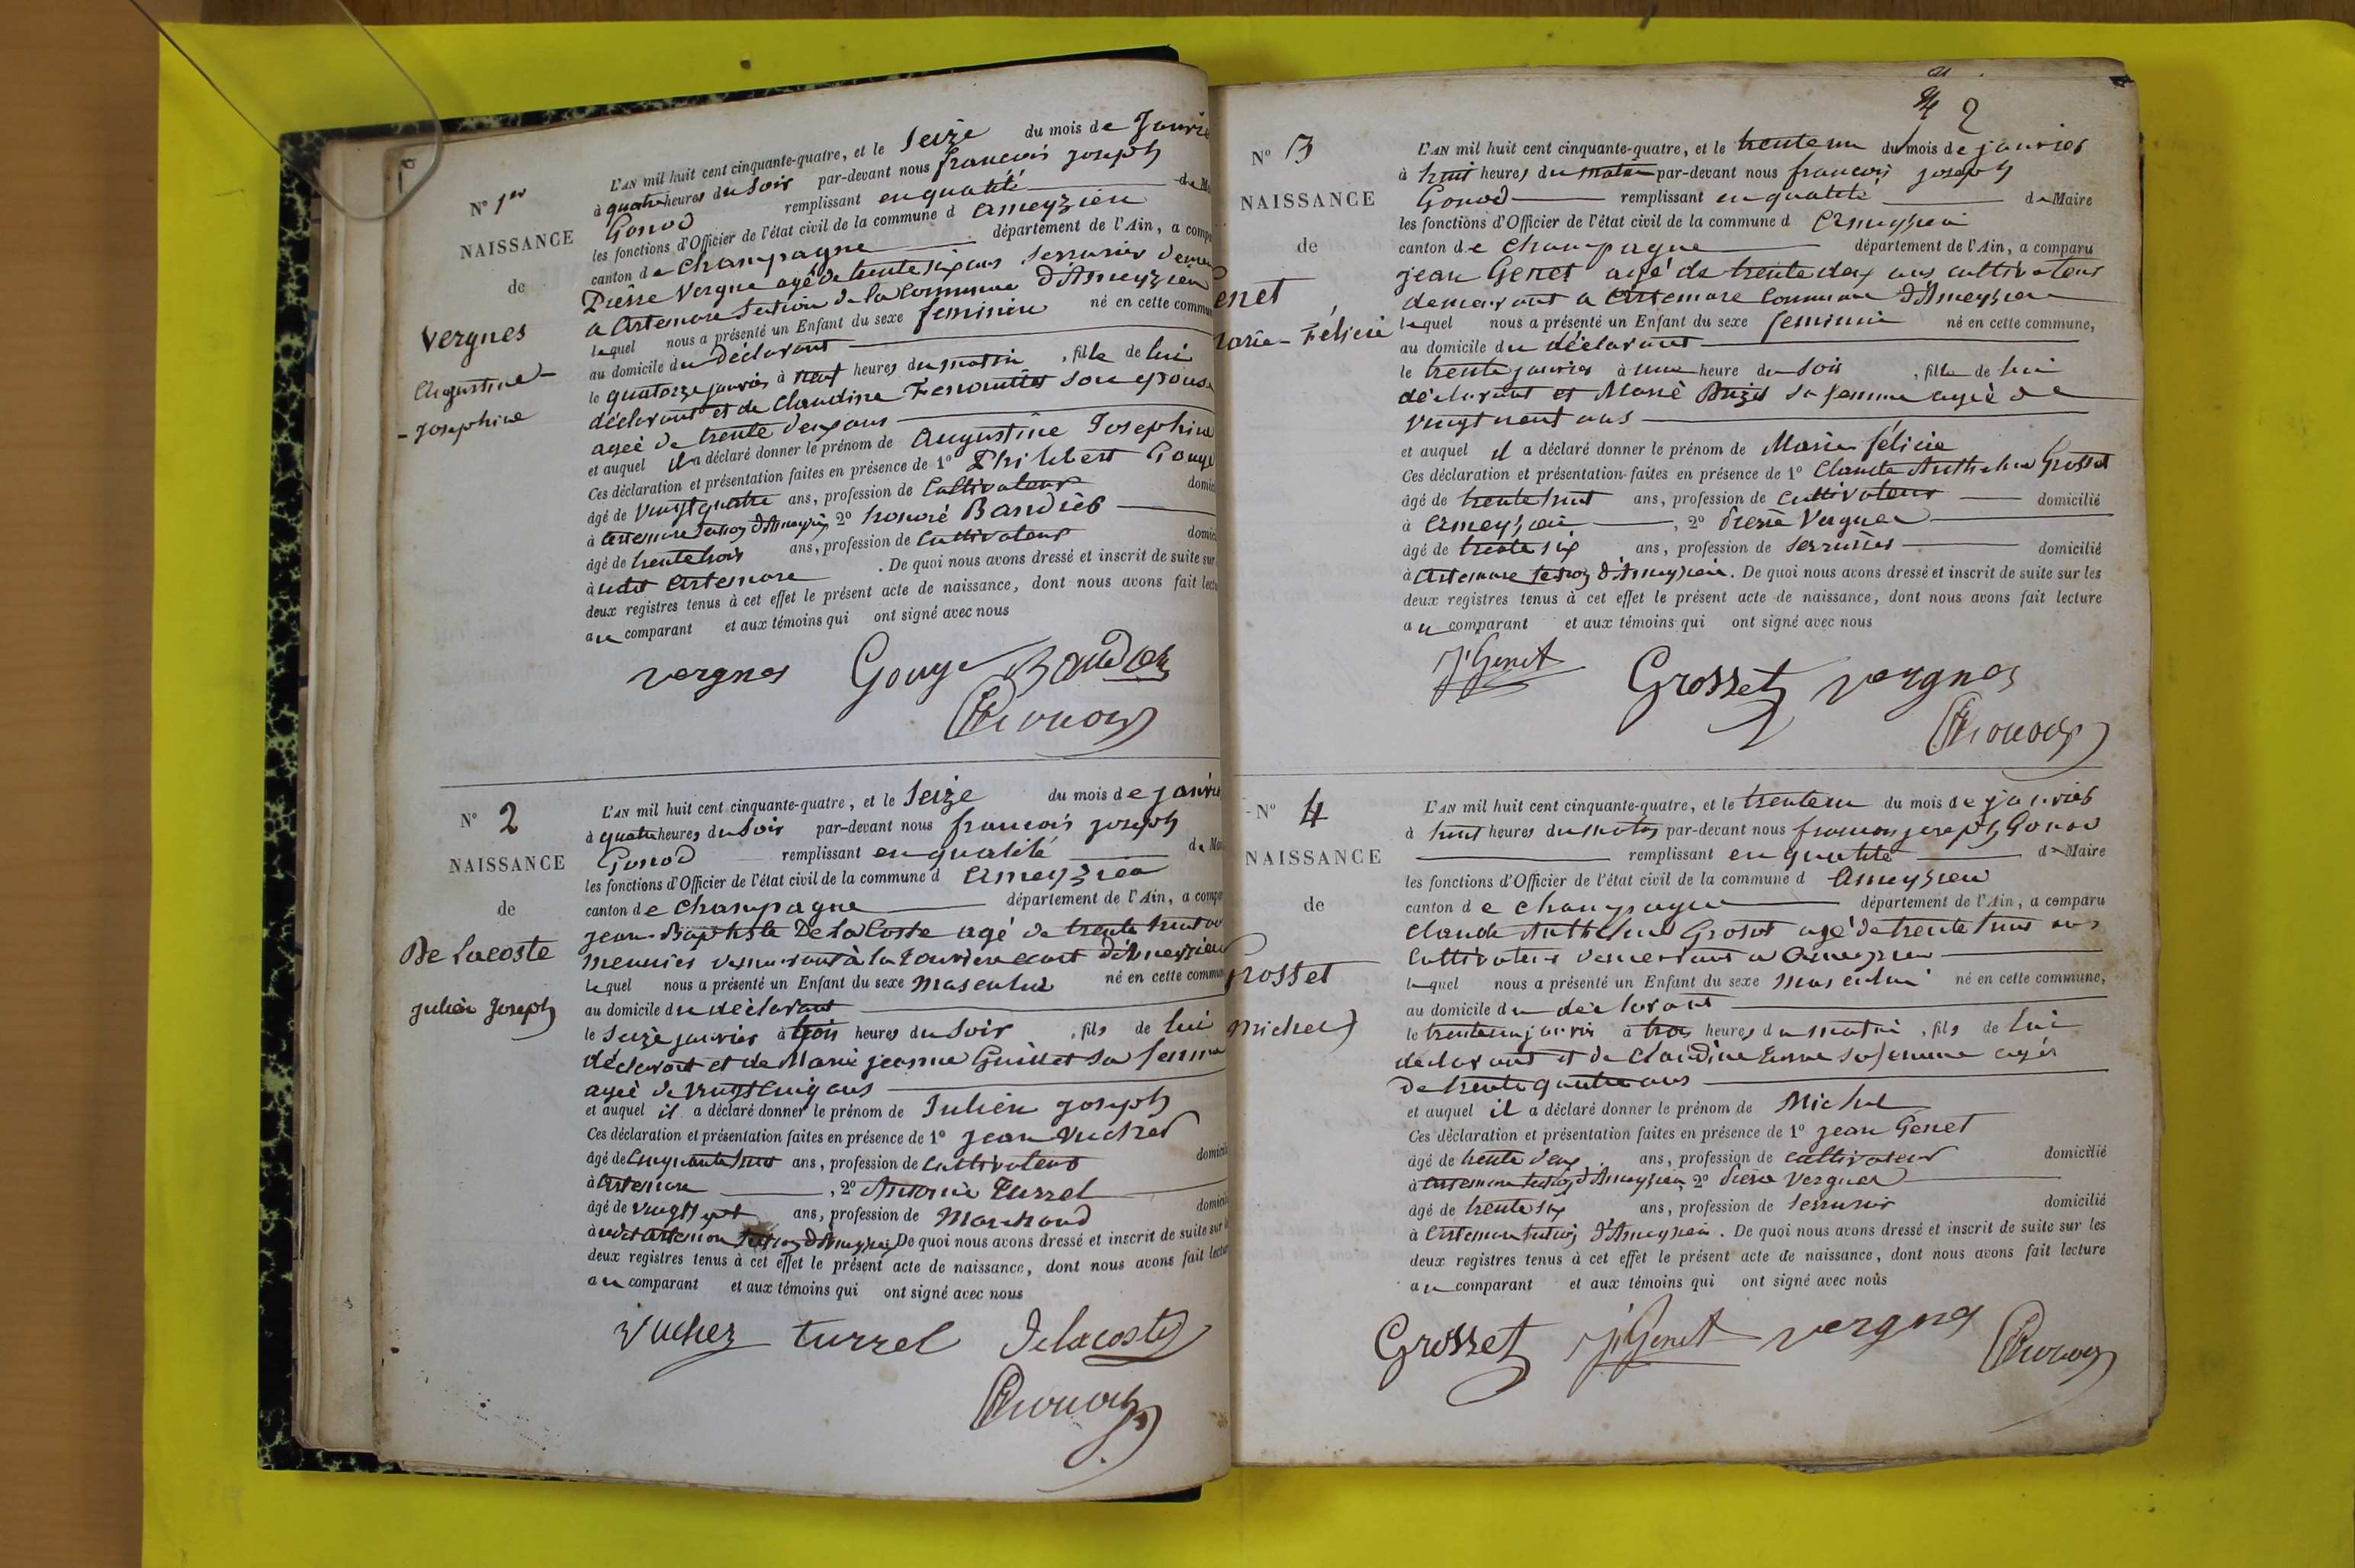 N° 1er
NAISSANCE
de
Vergnes
Augustine-
-Josephine
L'AN mil huit cent cinquante-quatre, et le Seize du mois de Janvie
à quatre heures du Soir par-devant nous francois joseph
Gonod remplissant en qualité de Ma
les fonctions d'Officier de l'état civil de la commune d Ameyzieu
canton de Champagne département de l'Ain, a compa
Pierre Vergne agé de trente six ans Serrurier demeu
a Artemare Section de la Commune d'Ameyzieu
lequel nous a présenté un Enfant du sexe feminin né en cette commun
au domicile du Déclarant
le quatorze janvier à neuf heures du matin , fille de lui
déclarant et de Claudine son epouse
agée de trente deux ans
et auquel il a déclaré donner le prénom de Augustine Josephine
Ces déclaration et présentation faites en présence de 1° Philibert Gouge
âgé de vingt quatre ans, profession de Cultivateur domici
à Artemare Section d'Ameyzieu 2° honoré Bandier
âgé de trente trois ans, profession de Cultivateur domici
à udit Artemare . De quoi nous avons dressé et inscrit de suite sur
deux registres tenus à cet effet le présent acte de naissance, dont nous avons fait lectu
au comparant et aux témoins qui ont signé avec nous
vergnes Gouge
N° 2
NAISSANCE
de
De Lacoste
julien Joseph
L'AN mil huit cent cinquante-quatre, et le Seize du mois de janvie
à quatre heures du Soir par-devant nous francois joseph
Gonod remplissant en qualité de Mai
les fonctions d'Officier de l'état civil de la commune d Ameyzieu
canton de Champagne département de l'Ain, a compa
jean-Baptiste De la Coste agé de trente huit an
meunier demeurant à la ecart d'Ameyzieu
lequel nous a présenté un Enfant du sexe masculin né en cette commun
au domicile du déclarant
le Seize janvier à trois heures du Soir , fils de lui
déclarant et de Marie jeanne Guillet sa femme
agée de vingt cinq ans
et auquel il a déclaré donner le prénom de Julien joseph
Ces déclaration et présentation faites en présence de 1° jean Vuchet
âgé de ans, profession de Cultivateur domicili
à Artemare , 2° Antoine Turrel
âgé de vingt sept ans, profession de Marchand domicili
à udit Artemare Section d'Ameyzieu De quoi nous avons dressé et inscrit de suite sur
deux registres tenus à cet effet le présent acte de naissance, dont nous avons fait lectur
au comparant et aux témoins qui ont signé avec nous
Vuchez turrel Delacoste
2
N° 3
NAISSANCE
de
enet
arie-Félicie
L'AN mil huit cent cinquante-quatre, et le trente un du mois de janvier
à huit heures du matin par-devant nous francois joseph
Gonod remplissant en qualité de Maire
les fonctions d'Officier de l'état civil de la commune d Ameyzieu
canton de Champagne département de l'Ain, a comparu
jean Genet agé de trente deux ans cultivateur
demeurant a Artemare Commune d'Ameyzieu
lequel nous a présenté un Enfant du sexe feminin né en cette commune,
au domicile du déclarant
le trente janvier à une heure du Soir , fille de lui
déclarant et Marie sa femme agée de
vingt neuf ans
et auquel il a déclaré donner le prénom de Marie félicie
Ces déclaration et présentation faites en présence de 1° Claude Anthelme Grosset
âgé de trente huit ans, profession de Cultivateur domicilié
à Ameyzieu , 2° Pierre Vergnes
âgé de trente six ans, profession de serrurier domicilié
à Artemare section d'Ameyzieu. De quoi nous avons dressé et inscrit de suite sur les
deux registres tenus à cet effet le présent acte de naissance, dont nous avons fait lecture
au comparant et aux témoins qui ont signé avec nous
J Genet Grosset vergnes
N° 4
NAISSANCE
de
Grosset
michel
L'AN mil huit cent cinquante-quatre, et le trente un du mois de janvier
à huit heures du matin par-devant nous francois joseph Gonod
remplissant en qualité de Maire
les fonctions d'Officier de l'état civil de la commune d Ameyzieu
canton de Champagne département de l'Ain, a comparu
Claude Anthelme Grosset agé de trente huit ans
Cultivateur demeurant a Ameyzieu
lequel nous a présenté un Enfant du sexe masculin né en cette commune,
au domicile du déclarant
le trente un janvier à trois heures du matin , fils de lui
déclarant et de Claudine sa femme agée
de trente quatre ans
et auquel il a déclaré donner le prénom de Michel
Ces déclaration et présentation faites en présence de 1° jean Genet
âgé de trente deux ans, profession de cultivateur domicilié
à Artemare section d'Ameyzieu 2° Pierre Vergnes
âgé de trente six ans, profession de serrurier domicilié
à Artemare section d'Ameyzieu. De quoi nous avons dressé et inscrit de suite sur les
deux registres tenus à cet effet le présent acte de naissance, dont nous avons fait lecture
au comparant et aux témoins qui ont signé avec nous
Grosset J Genet vergnes